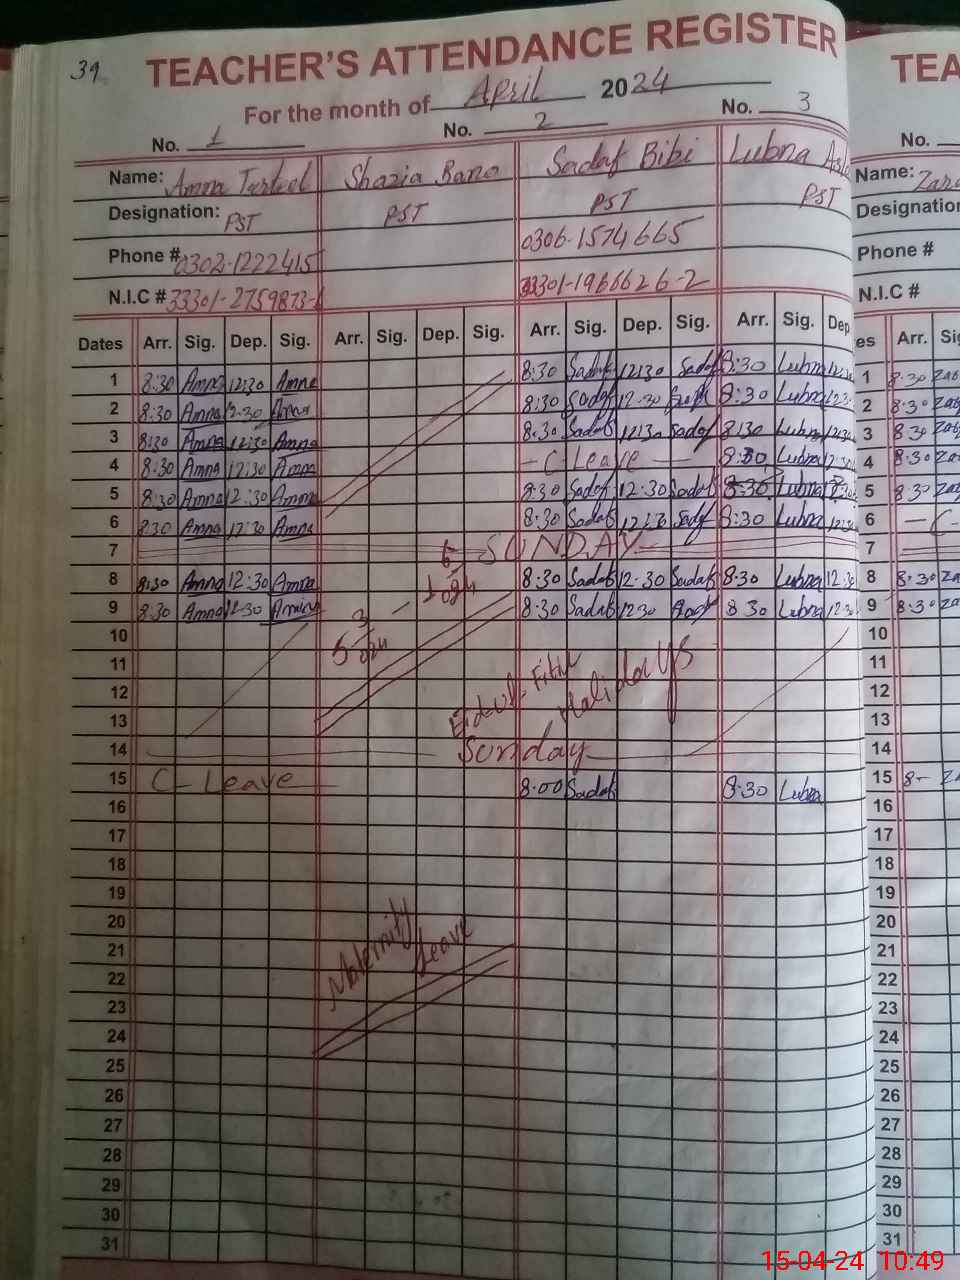 39
TEACHER'S ATTENDANCE REGISTER TEA
For the month of April 2024
No. 1 No. 2 No. 3 No.
Name: Amna Shazia Bano Sadaf Bibi Lubna Name:
Designation: PST PST PST PST Designation
Phone # 0302-1222415 0306-1574665 Phone #
N.I.C # 33301-2759873- 33301-1966626-2 N.I.C #
Dates Arr. Sig. Dep. Sig. Arr. Sig. Dep. Sig. Arr. Sig. Dep. Sig. Arr. Sig. Dep es Arr. Sig
1 8:30 Amna 12:30 Amna 8:30 Sadaf 12:30 Sadaf 8:30 Lubna 12:30 1 8:30
2 8:30 Amna 12:30 Amna 8:30 Sadaf 12:30 8:30 Lubna 12:3 2 8:30
3 8:30 Amna 12:30 Amna 8:30 Sadaf 12:30 Sadaf 8:30 Lubna 12:30 3 8:30
4 8:30 Amna 12:30 Amna - C-Leave - 8:30 Lubna 12:30 4 8:30
5 8:30 Amna 12:30 Amna 8:30 Sadaf 12:30 Sadaf 8:30 Lubna 5 8:30
6 8:30 Amna 12:30 Amna 8:30 Sadaf 12:30 Sadaf 8:30 Lubna 12:30 6 - C-
7 SUNDAY 7
8 8:30 Amna 12:30 Amna 8:30 Sadaf 12:30 Sadaf 8:30 Lubna 12:3 8 8:30
9 8:30 Amna 12:30 8:30 Sadaf 12:30 8:30 Lubna 12:30 9 8:30
10 10
11 11
12 Eid-ul-Fitur Halidays 12
13 13
14 Sunday 14
15 C-Leave 8:00 Sadaf 8:30 Lubna 15 8-
16 16
17 17
18 18
19 19
20 20
21 Maternity Leave 21
22 22
23 23
24 24
25 25
26 26
27 27
28 28
29 29
30 30
31 31
15-04-24 10:49